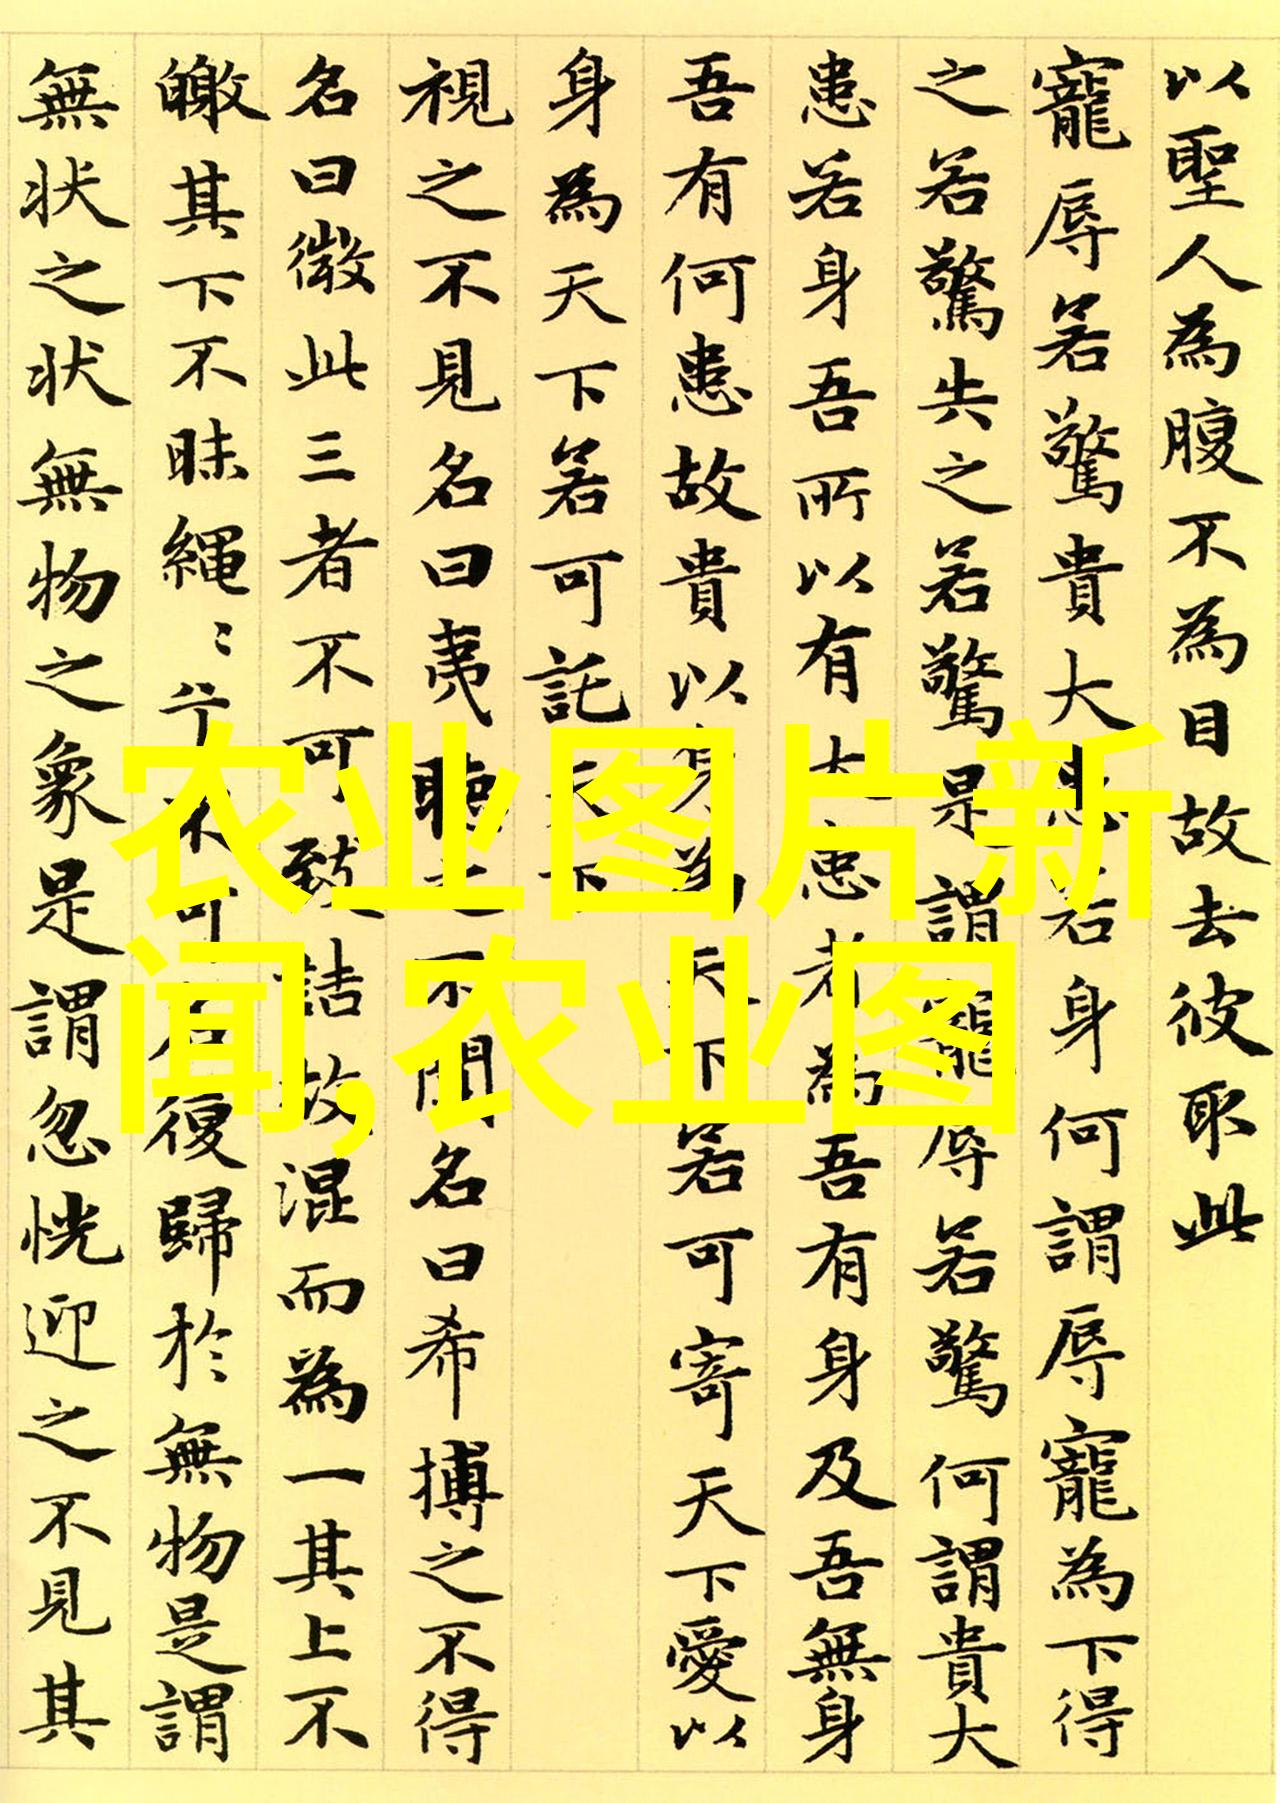 以聖人為腹不為目故去彼取此
寵辱若驚貴大患若身何謂辱寵為下得
之若驚失之若驚是謂寵辱若驚何謂貴大
患若身吾所以有大患者為吾有身及吾無身
吾有何患故貴以身為天下若可寄天下愛以
身為天下若可託天下
視之不見名曰夷聽之不聞名曰希搏之不得
名曰微此三者不可致詰故混而為一其上不
皦其下不昧繩〻兮不可名復歸於無物是謂
無状之状無物之象是謂忽恍迎之不見其
农业图片新
闻,农业图